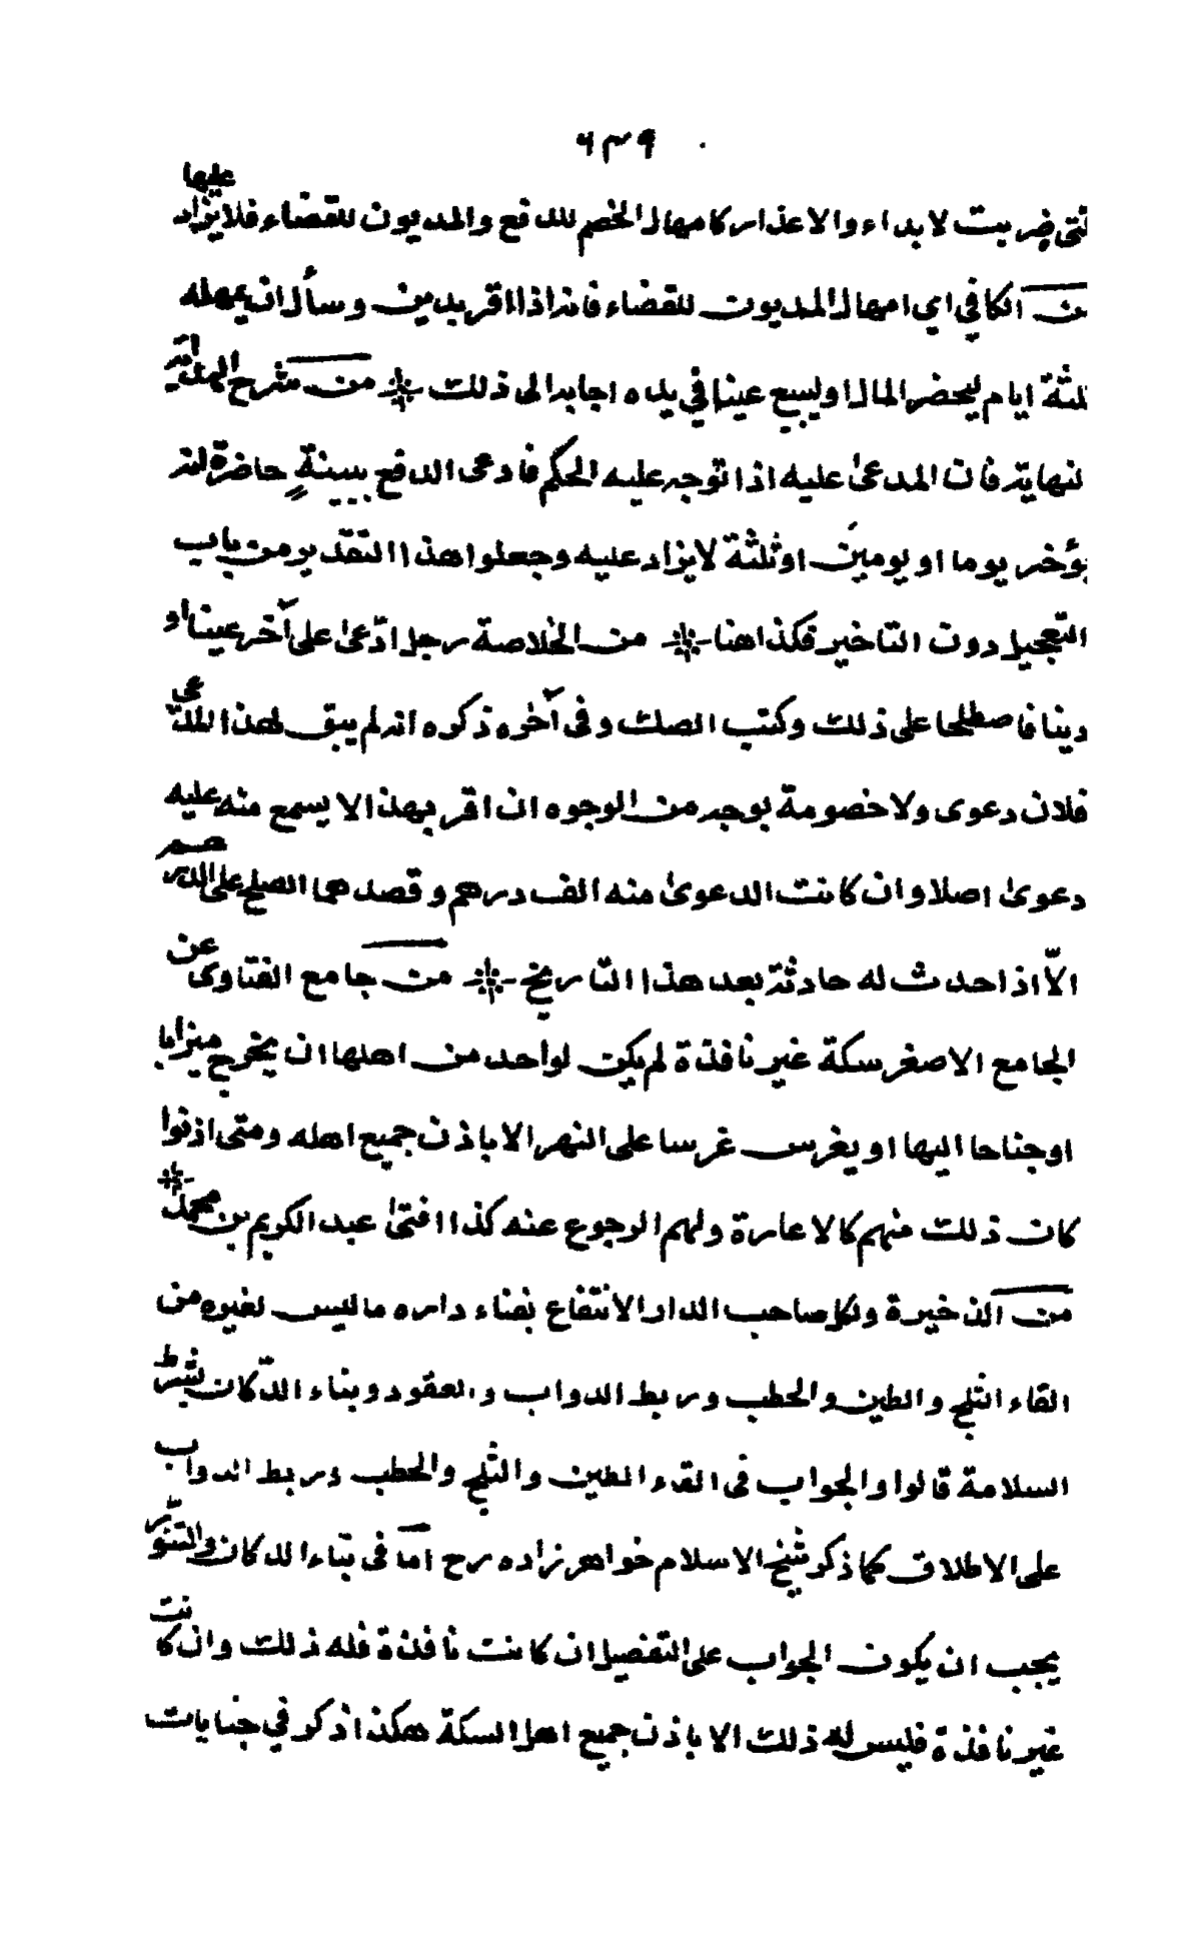 ٦٣٩
لتي ضربت لابداء والاعذار كامهال الخصم للدفع والمديون للقضاء فلا يزاد عليها
من الكافي اي امهال المديون للقضاء فانه اذا اقر بدين وسأل ان يمهله
ثلثة ايام ليحضر المال او ليبيع عينا في يده اجابه الى ذلك من شرح الهداية
لنهاية فان المدعىٰ عليه اذا توجه عليه الحكم فادعى الدفع ببينةٍ حاضرة انه
يؤخر يوما او يومين او ثلثة لا يزاد عليه وجعلوا هذا التقدير من باب
التعجيل دون التاخير فكذا هنا من الخلاصة رجل ادّعىٰ على آخر عينا او
دينا فاصطلحا على ذلك وكتب الصك وفى آخره ذكره انه لم يبق لهذا المدّعى
فلان دعوى ولا خصومة بوجه من الوجوه ان اقر بهذا لا يسمع منه عليه
دعوىٰ اصلا وان كانت الدعوىٰ منه الف درهم وقصدهما الصلح على الدرهم
الاّ اذا حدث له حادثة بعد هذا التاريخ من جامع الفتاوى عن
الجامع الاصغر سكة غير نافذة لم يكن لواحد من اهلها ان يخرج ميزابا
او جناحا اليها او يغرس غرسا على النهر الا باذن جميع اهله ومتى اذنوا
كان ذلك منهم كالاعارة ولهم الرجوع عنه كذا افتىٰ عبد الكريم بن محمد
من الذخيرة ولكل صاحب الدار الانتفاع بفناء داره ما ليس لغيره من
القاء الثلج والطين والحطب وربط الدواب والعقود وبناء الدّكان بشرط
السلامة قالوا والجواب فى القاء الطين والثلج والحطب وربط الدواب
على الاطلاق كما ذكر شيخ الاسلام خواهر زاده رح اما فى بناء الدكان والتنّور
يجب ان يكون الجواب على التفصيل ان كانت نافذة فله ذلك وان كانت
غير نافذة فليس له ذلك الا باذن جميع اهل السكة هكذا ذكر في جنايات